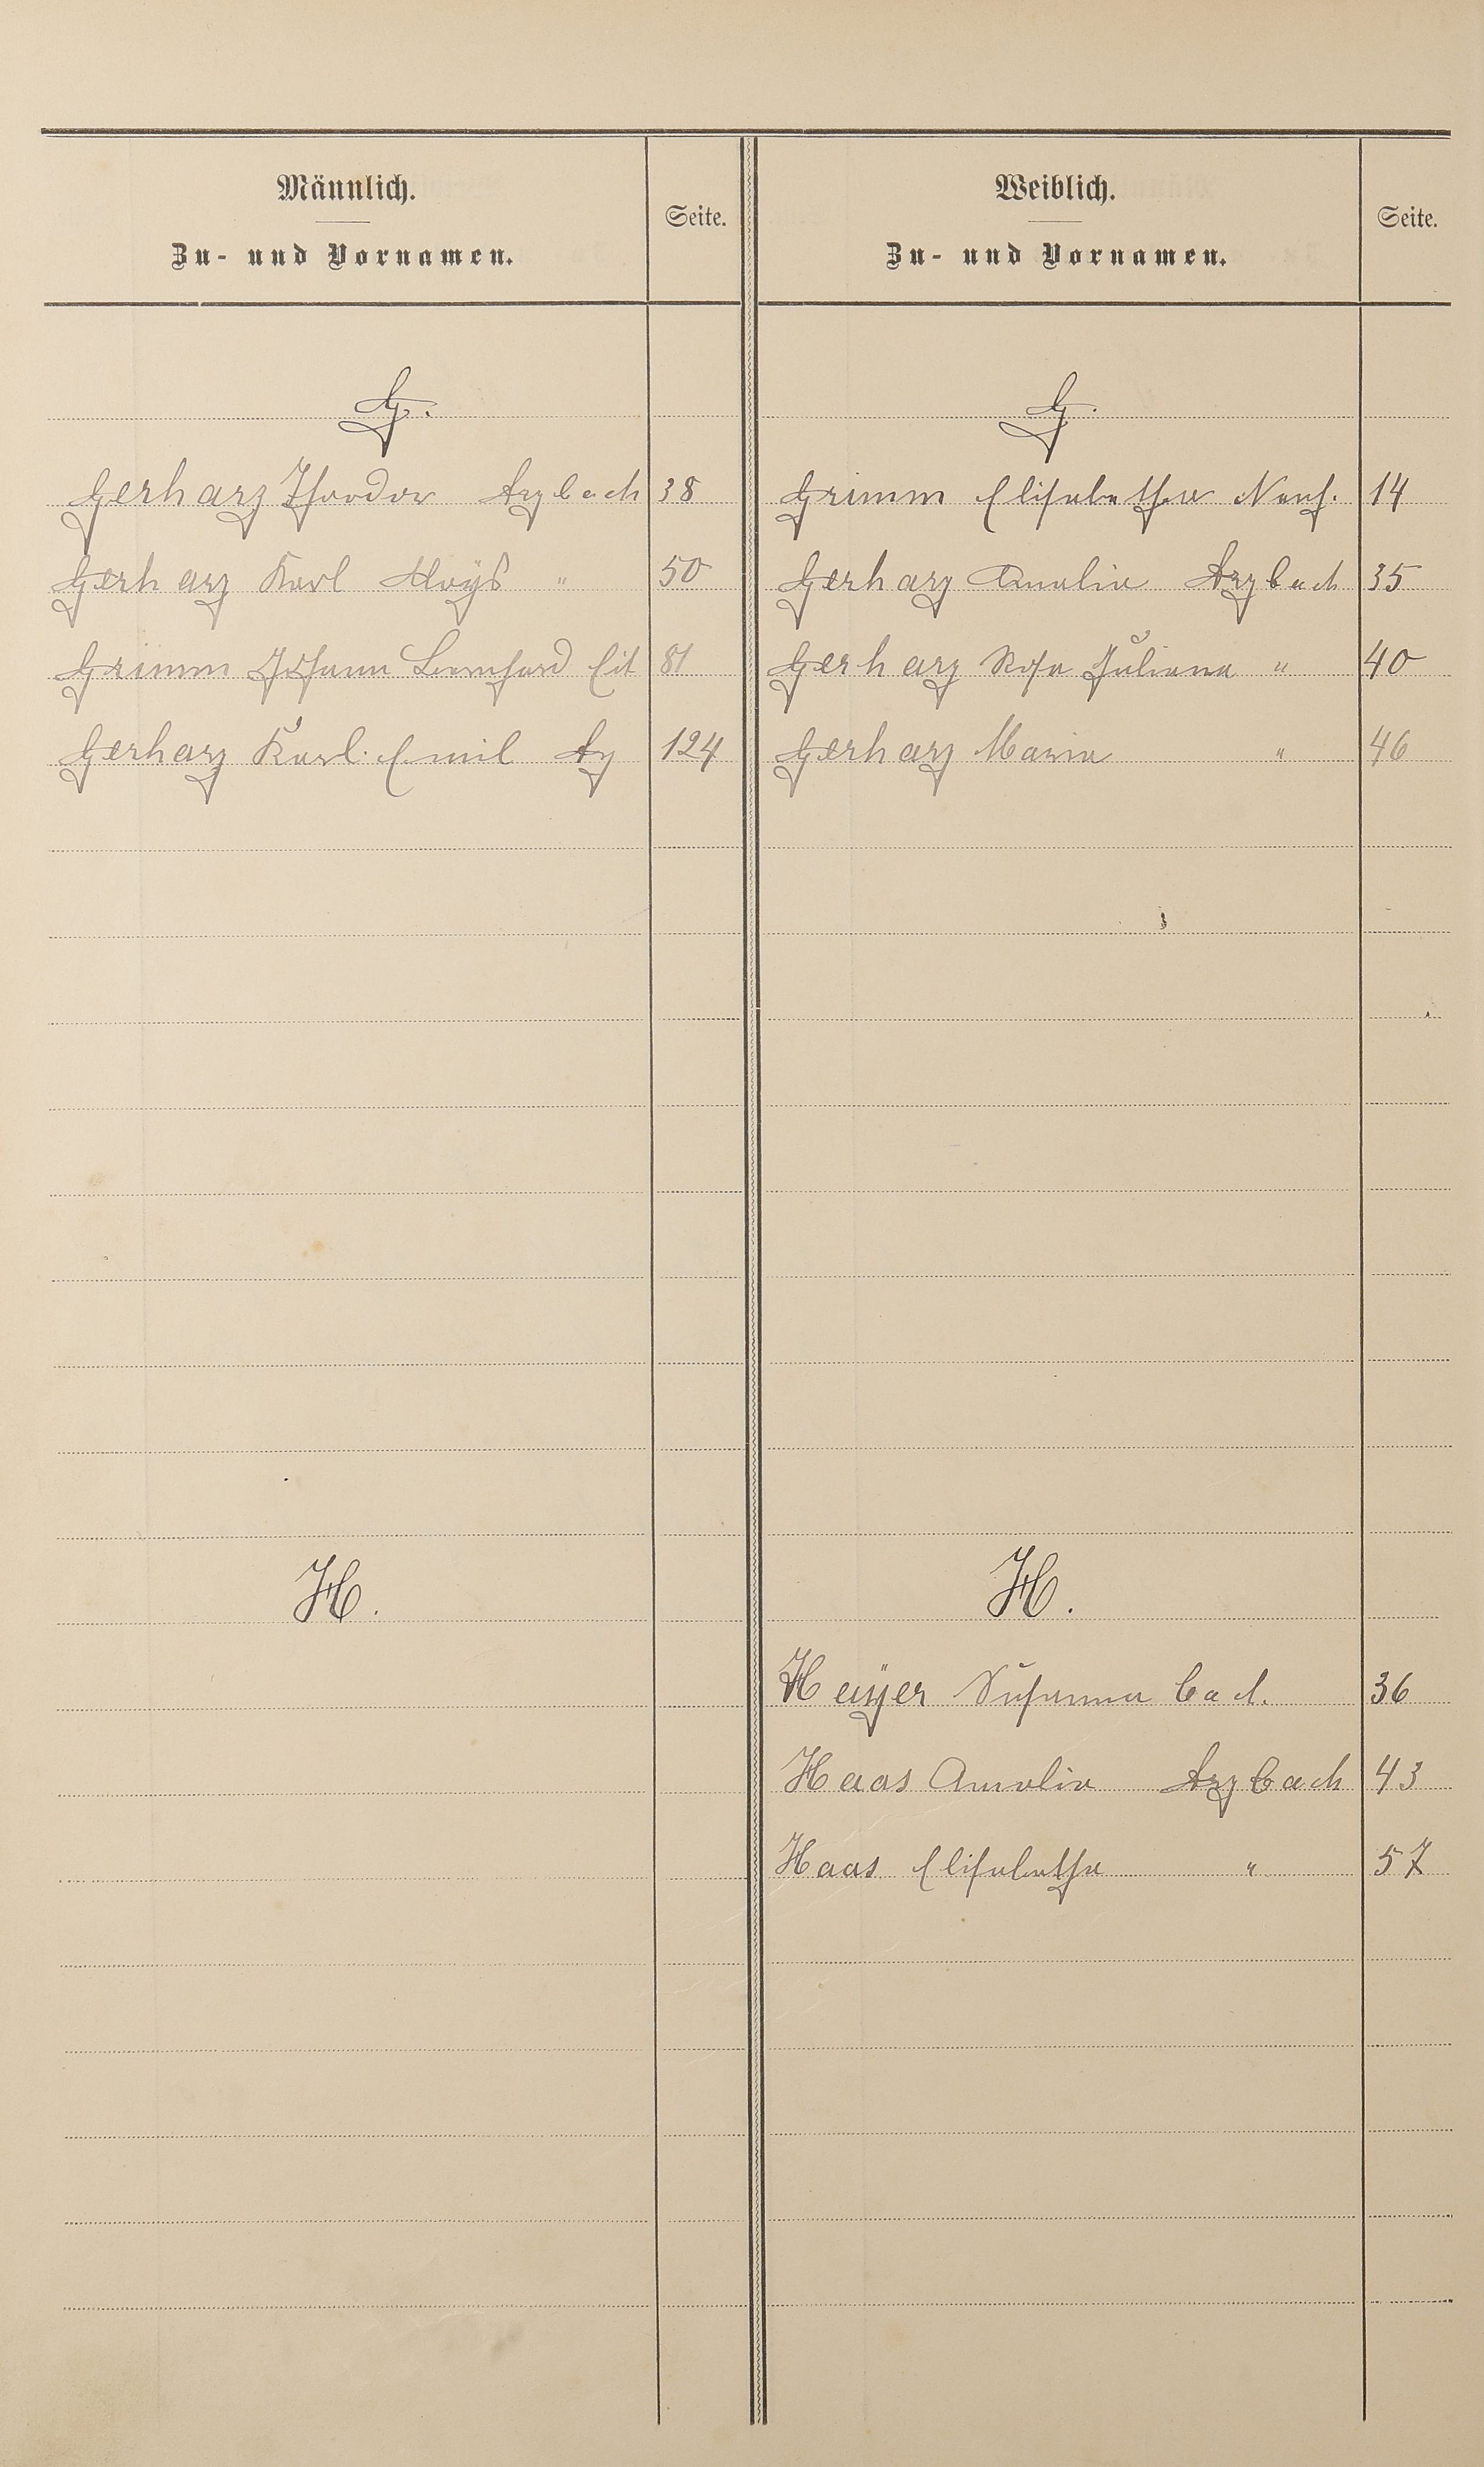 Männlich.
Zu- und Vornamen.
Seite.
G.
Gerharz Theodor Arzbach 38
Gerharz Karl Aloys " 50
Grimm Johann Bernhard Eit 81
Gerharz Karl Emil Arz 124
H.
Weiblich.
Zu- und Vornamen.
Seite.
G.
Grimm Elisabetha Neuh. 14
Gerharz Amalia Arzbach 35
Gerharz Rosa Juliana " 40
Gerharz Maria " 46
H.
Heyer Susanna Cad. 36
Haas Amalia Arzbach 43
Haas Elisabetha " 57